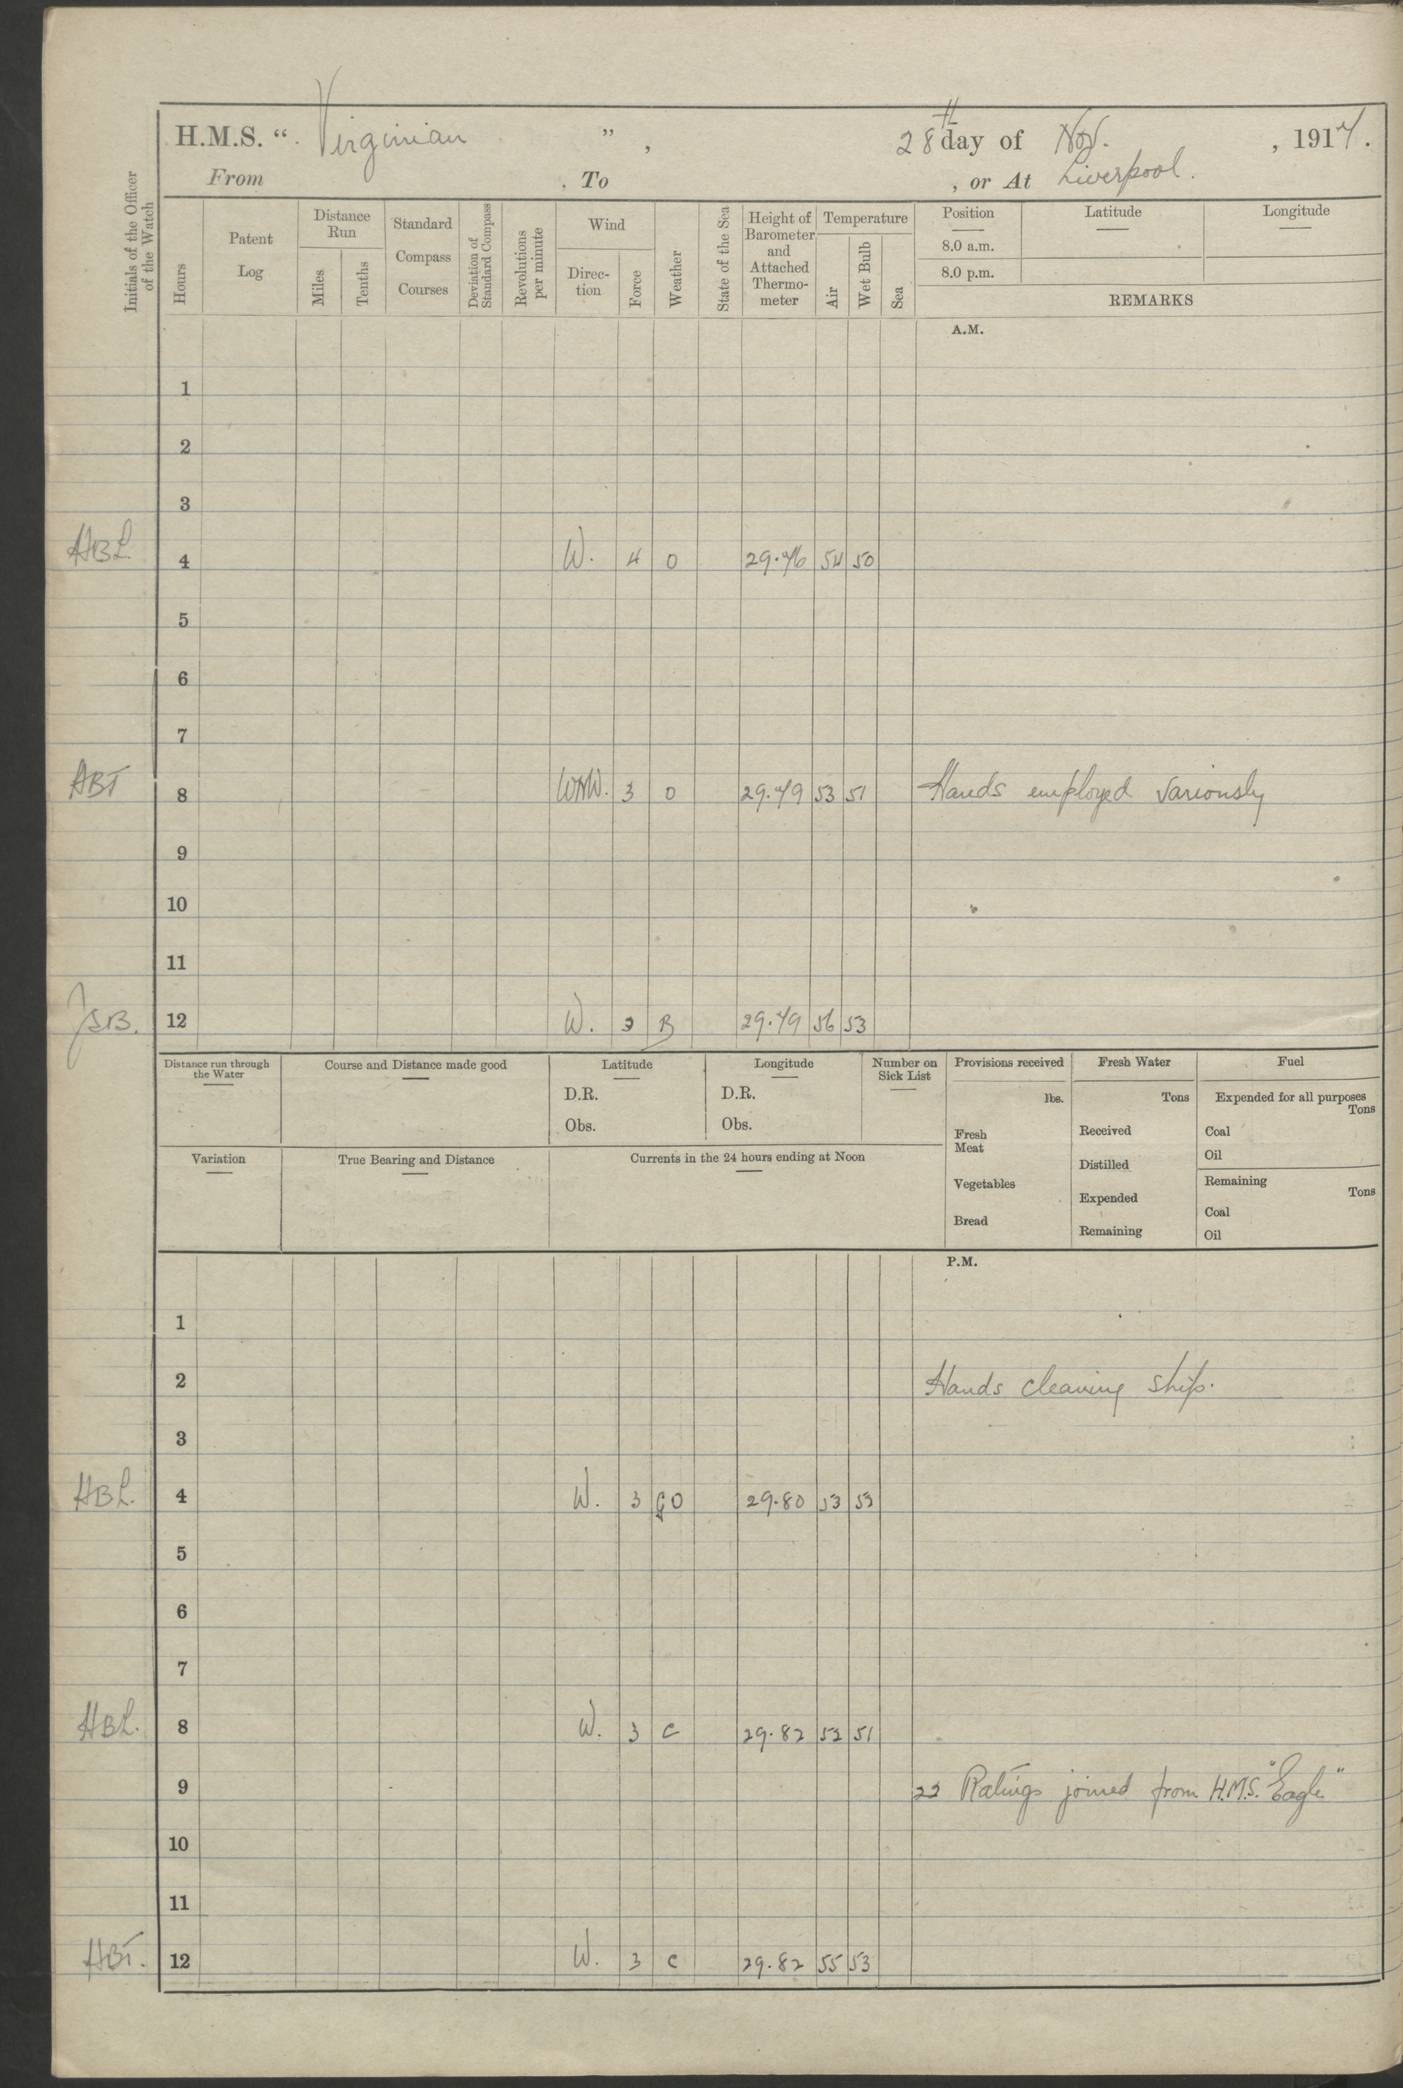 H.M.S. “ Virginian ”, 28th day of Nov. , 1917.
From , To , or At Liverpool.
Initials of the Officer of the Watch
Hours
Patent Log
Distance Run
Miles
Tenths
Standard Compass Courses
Deviation of Standard Compass
Revolutions per minute
Wind
Direction
Force
Weather
State of the Sea
Height of Barometer and Attached Thermometer
Temperature
Air
Wet Bulb
Sea
Position Latitude Longitude
8.0 a.m.
8.0 p.m.
REMARKS
A.M.
1
2
3
HBL 4 W. 4 O 29.76 54 50
5
6
7
HBT 8 WNW. 3 O 29.79 53 51 Hands employed variously
9
10
11
JSB. 12 W. 3 B 29.79 56 53
Distance run through the Water
Course and Distance made good
Latitude
D.R.
Obs.
Longitude
D.R.
Obs.
Number on Sick List
Provisions received
lbs.
Fresh Meat
Vegetables
Bread
Fresh Water
Tons
Received
Distilled
Expended
Remaining
Fuel
Expended for all purposes
Tons
Coal
Oil
Remaining
Tons
Coal
Oil
Variation
True Bearing and Distance
Currents in the 24 hours ending at Noon
P.M.
1
2 Hands cleaning ship.
3
HBL. 4 W. 3 O 29.80 53 53
5
6
7
HBL. 8 W. 3 C 29.82 52 51
9 22 Ratings joined from H.M.S. "Eagle"
10
11
HBT. 12 W. 3 C 29.82 55 53